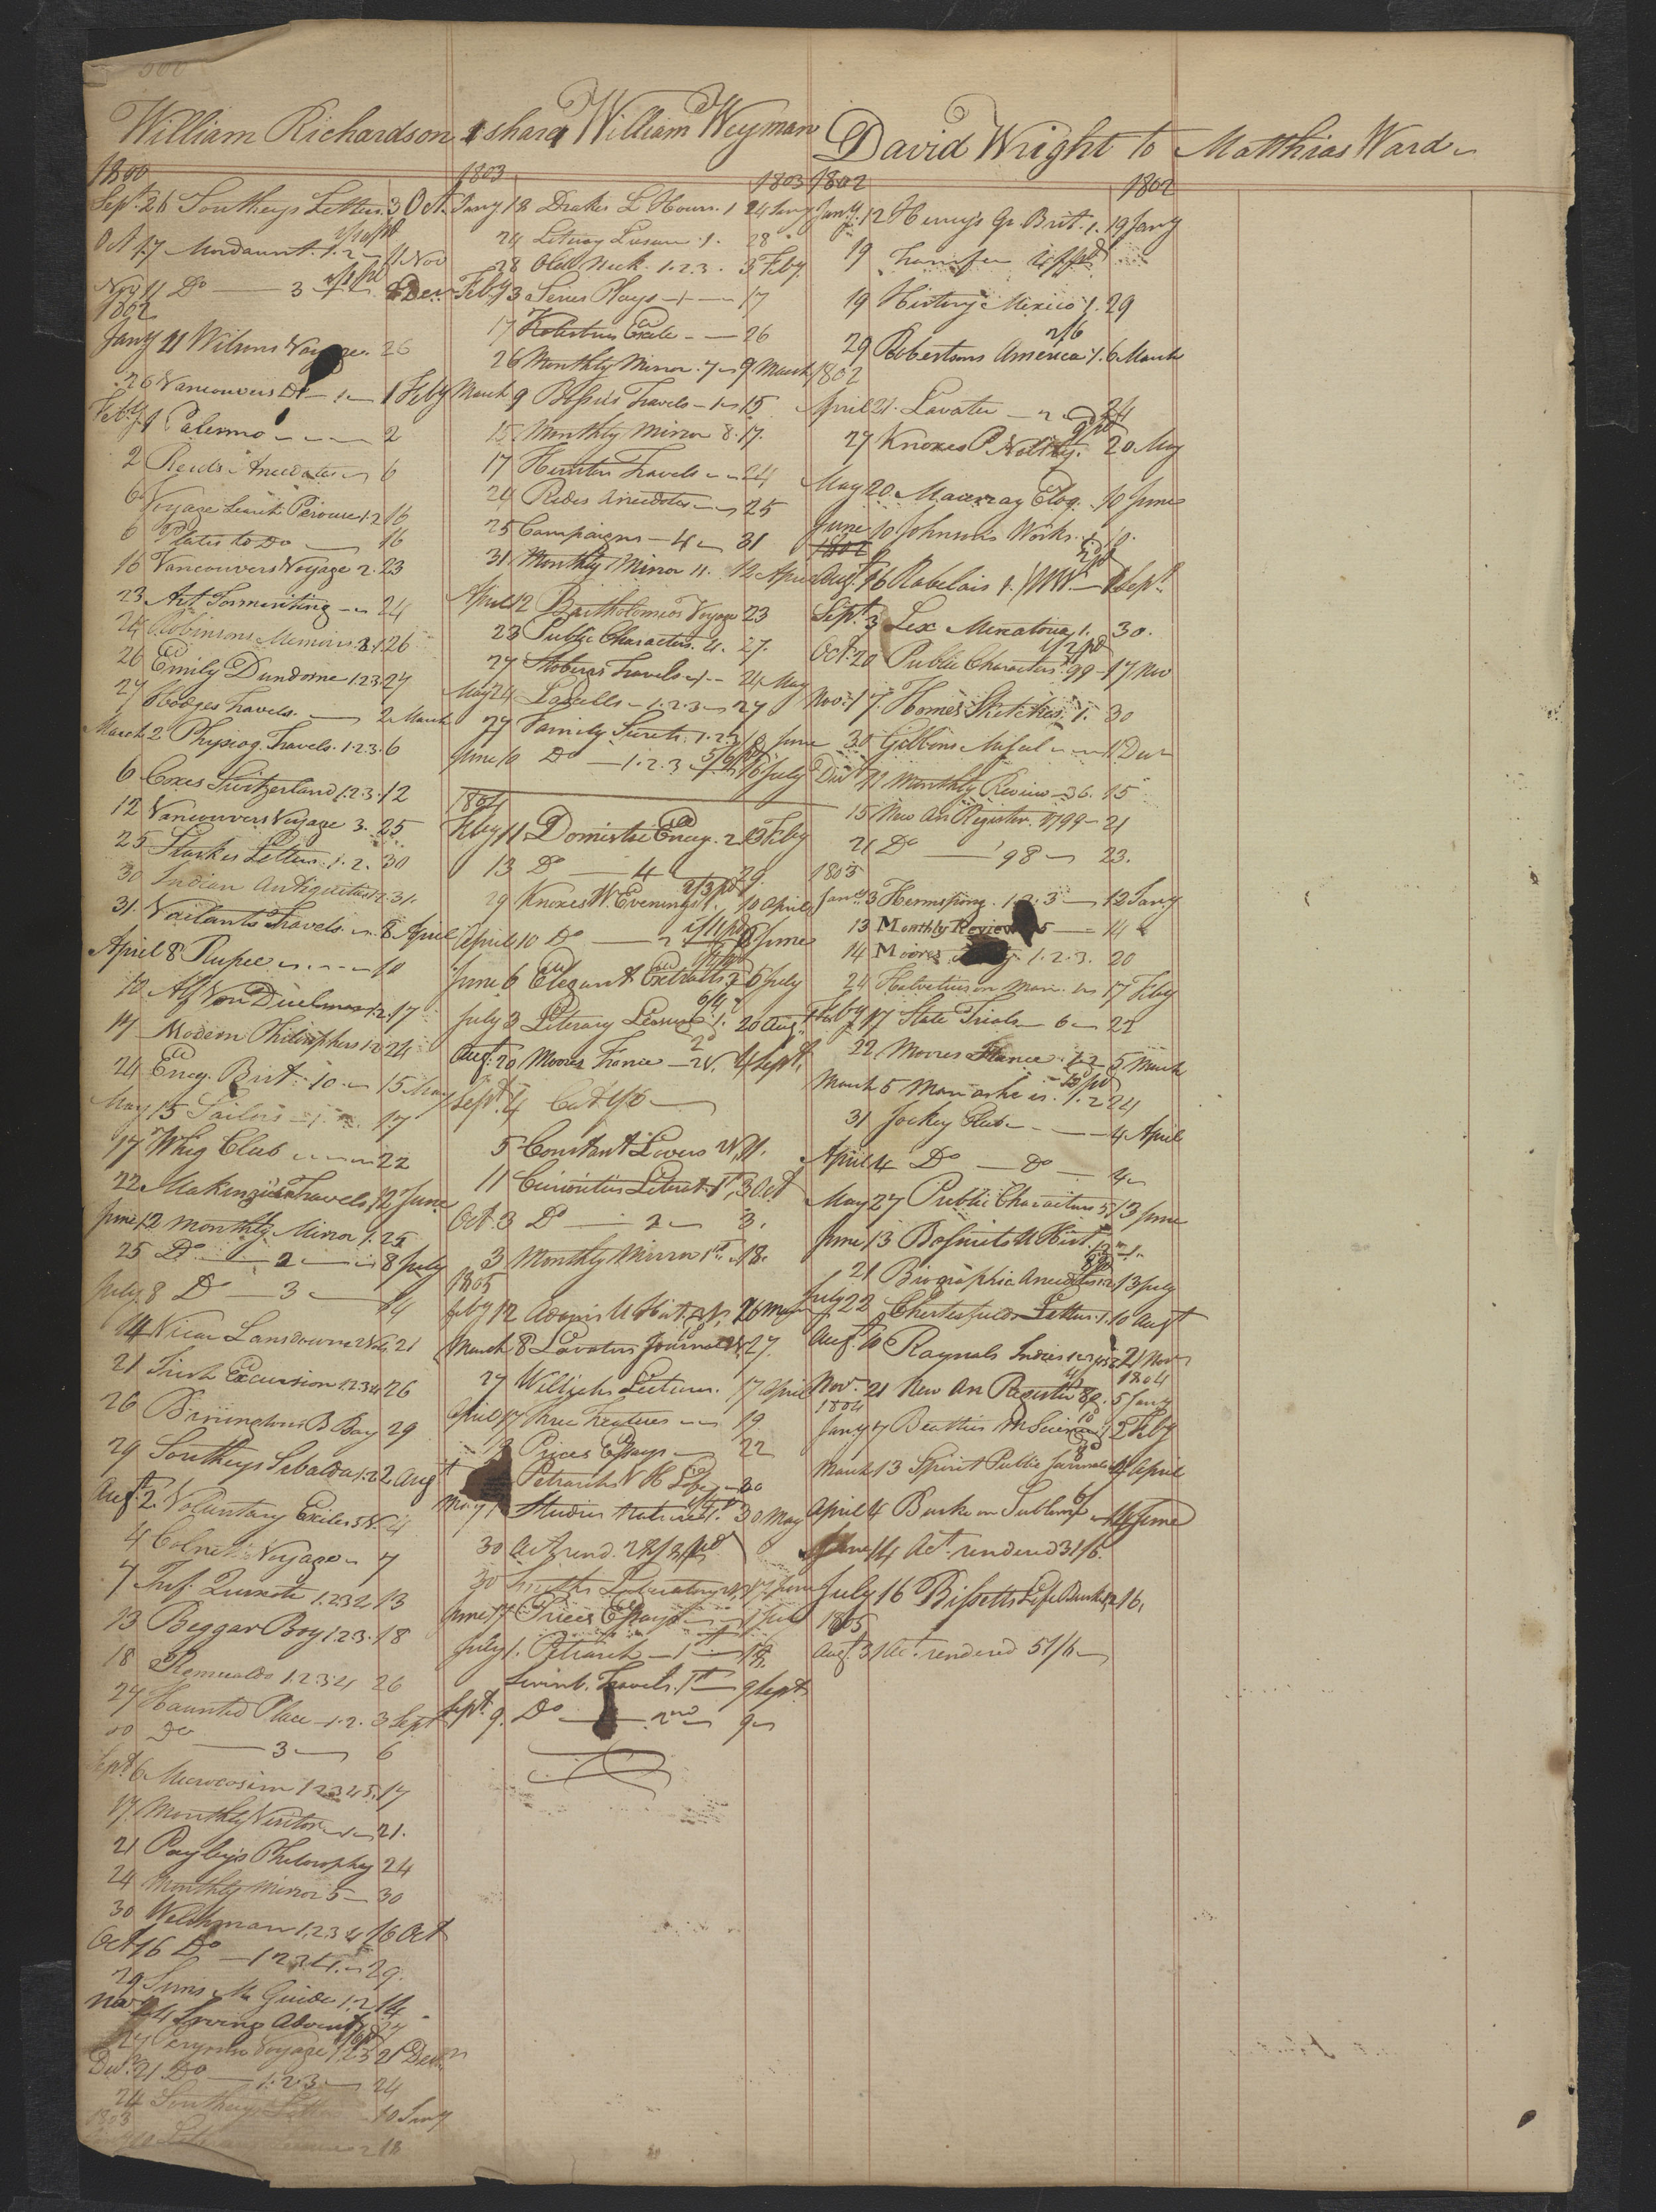 300
William Richardson 1 share William Weyman
David Wright to Matthias Ward
1800
Sept. 26 Southeys Letters 3 Oct.
2/10 pd
Oct 17 Mordaunt. 1. 2 11 Nov
Nov 11 Do 3 Dec
1802
Jany 21 Wilsons Voyage. 26
26 Vancouvers Do 1 1 Feby
Feby 1 Palermo 2
2 Reids Anecdotes 6
6 Voyage Search Perouse 1.2 16
6 Plates to Do 16
16 Vancouvers Voyage 2. 23
23 Art Tormenting 24
24 Robinsons Memoirs 26
26 Emily Dundorne 1.2.3 27
27 Hodges Travels. 2 March
March 2 Physiog. Travels. 1.2.3. 6
6 Coxes Switzerland 1.2.3. 12
12 Vancouvers Voyage 3. 25
25 Starkes Letters. 1. 2. 30
30 Indian Antiquities 31.
31. Vailants Travels. 8 April
April 8 Rupee 10
10 Alf Von Duelman 1.2. 17
17 Modern Philosophers 1.2 24
24 Ency. Brit. 10 15 May
May 15 Sailors 17
17 Whig Club 22
22 Makenzies Travels 12 June
June 12 Monthly Mirror 1. 25
25 Do 2 8 July
July 8 Do 3 14
14 Vicar Lansdowne 2 Vols. 21
21 Irish Excursion 1.2.3.4 26
26 Barringtons B Bay 29
29 Southeys Sebaldus 1.2 2 Aug
Augt. 2 Voluntary Exile 5 V. 4
4 Colnets Voyage 7
7 Inf. Quixote 1.2.3.4 13
13 Beggar Boy 1.2.3. 18
18 Romualdo 1.2.3.4 26
27 Haunted Place 1.2. 3 Sept
Do 3 6
Sept 6 Microcosm 1.2.3.4.5. 17
17. Monthly Visitor 1 21.
21 Payleys Philosophy 24
24 Monthly Mirror 5 30
30 Welshman 1.2.3.4 16 Oct
Oct 16 Do 1 2 3 4. 29.
29 Sims M. Guide 1.2 14
Nov 14
Voyage 1.2.3 21 Dec
Dec. 21 Do 1.2.3 24
24 Southeys Letters 10 Jany
1803
18
1803 1803
Jany 18 Drakes L Hours. 1 24 Jany
24 Literary Leisure. 1. 28
28 Old Nick. 1.2.3. 3 Feby
Feby 3 Series Plays 1 17
17 26
26 Monthly Mirror. 7 9 March
March 9 Bossu's Travels 1 15
15 Monthly Mirror 8. 17.
17 Hunters Travels 24
24 Rides Anecdotes 25
25 Campaigns 4 31
31 Monthly Mirror 11. 12 April
April 12 Bartholomeos Voyage 23
23 Public Characters. 4. 27.
27 Stobergs Travels 1 24 May
May 24 Lascells 1.2.3 27
27 Family Secrets. 1.2.3 10 June
June 10 Do 1.2.3 16 July
1804
Feby 11 Domestic Ency. 2. 13 Feby
13 Do 4 29.
2/3 pd
29 Knoxes W. Evenings 1. 10 April
April 10 Do 2 6 June
June 6 Elegant Extracts 2 6 July
July 3 Literary Leisure 1. 20 Aug
Augt. 20 Moores France 2 V. 4 Sept.
Sept. 4 Cat
5 Constant Lovers 2 V, 11.
11 Curiosities Literat. 1st, 3 Oct.
Oct. 3 Do 2 3.
3 Monthly Mirror 1st 18.
1805
Feby 12 Adams U Hist. 26 March
March 8 Lavaters Journal 27.
27 Willichs Lectures. 17 April
April 17 19
Prices Essays 22
Petrarchs 30
May 1 Studies Nature 1st. 30 May
30 Act rend. pd
30 Smiths Laboratory 17 June
June 17 Prices Essays 1 July
July 1. Petrarch 1st
Swinb. Travels. 1st 9 Sept
Sept. 9. Do 2nd 9
1802 1802
Jany. 12 Henry's Gr. Brit. 1. 19 Jany
19 Transfer pd
19 History Mexico 1. 29
2/6
29 Robertsons America 1. 6 March
1802
April 21. Lavater 24
27 Knoxes P. Nobility. 20 May
May 20 Mackray Eloq. 10 June
June 10 Johnsons Works. 1 10.
1802
Augt. 16 Rabelais 1. 2 Sept.
Sept. 3 Lex Mercatoria 1. 30.
Oct. 20 Public Characters 99 17 Nov
Nov. 17. Homes Sketches 1. 30
30 Gibbons Miscel 11 Dec
Decr. 11 Monthly Review 36. 15
15 New An Register. 1799 21
21 Do 98 23.
1803
Jany. 3 Hermsprong. 1.2.3 12 Jany
13 Monthly Review 5 14
14 Moores 1.2.3. 20
24 Helvetius on Man. 17 Feby
Feby 17 State Trials 6 22
22 Moores France. 1.2 5 March
March 5 Monarchies. 1.2 24
31 Jockey Club 4 April
April 4 Do Do 4
May 27 Public Characters 5 13 June
June 13 Bossuets U Hist.
21 Biographic Anecdotes 1.2 13 July
July 22 Chesterfields Letters. 1. 10 Augt
Augt. 10 Raynals Indies 21 Nov
1804
Nov. 21 New An Register 89. 5 Jany
1804
Jany 7 Beatties M Science 1 2 Feby
March 13 Spirit Public Journals 4 April
April 4 Burke on Sublime 14 June
June 14 Act. rendered 31/6.
July 16 Bissetts Life Burke 1.2 16.
1805
Augt. 31 Act. rendered 51/6